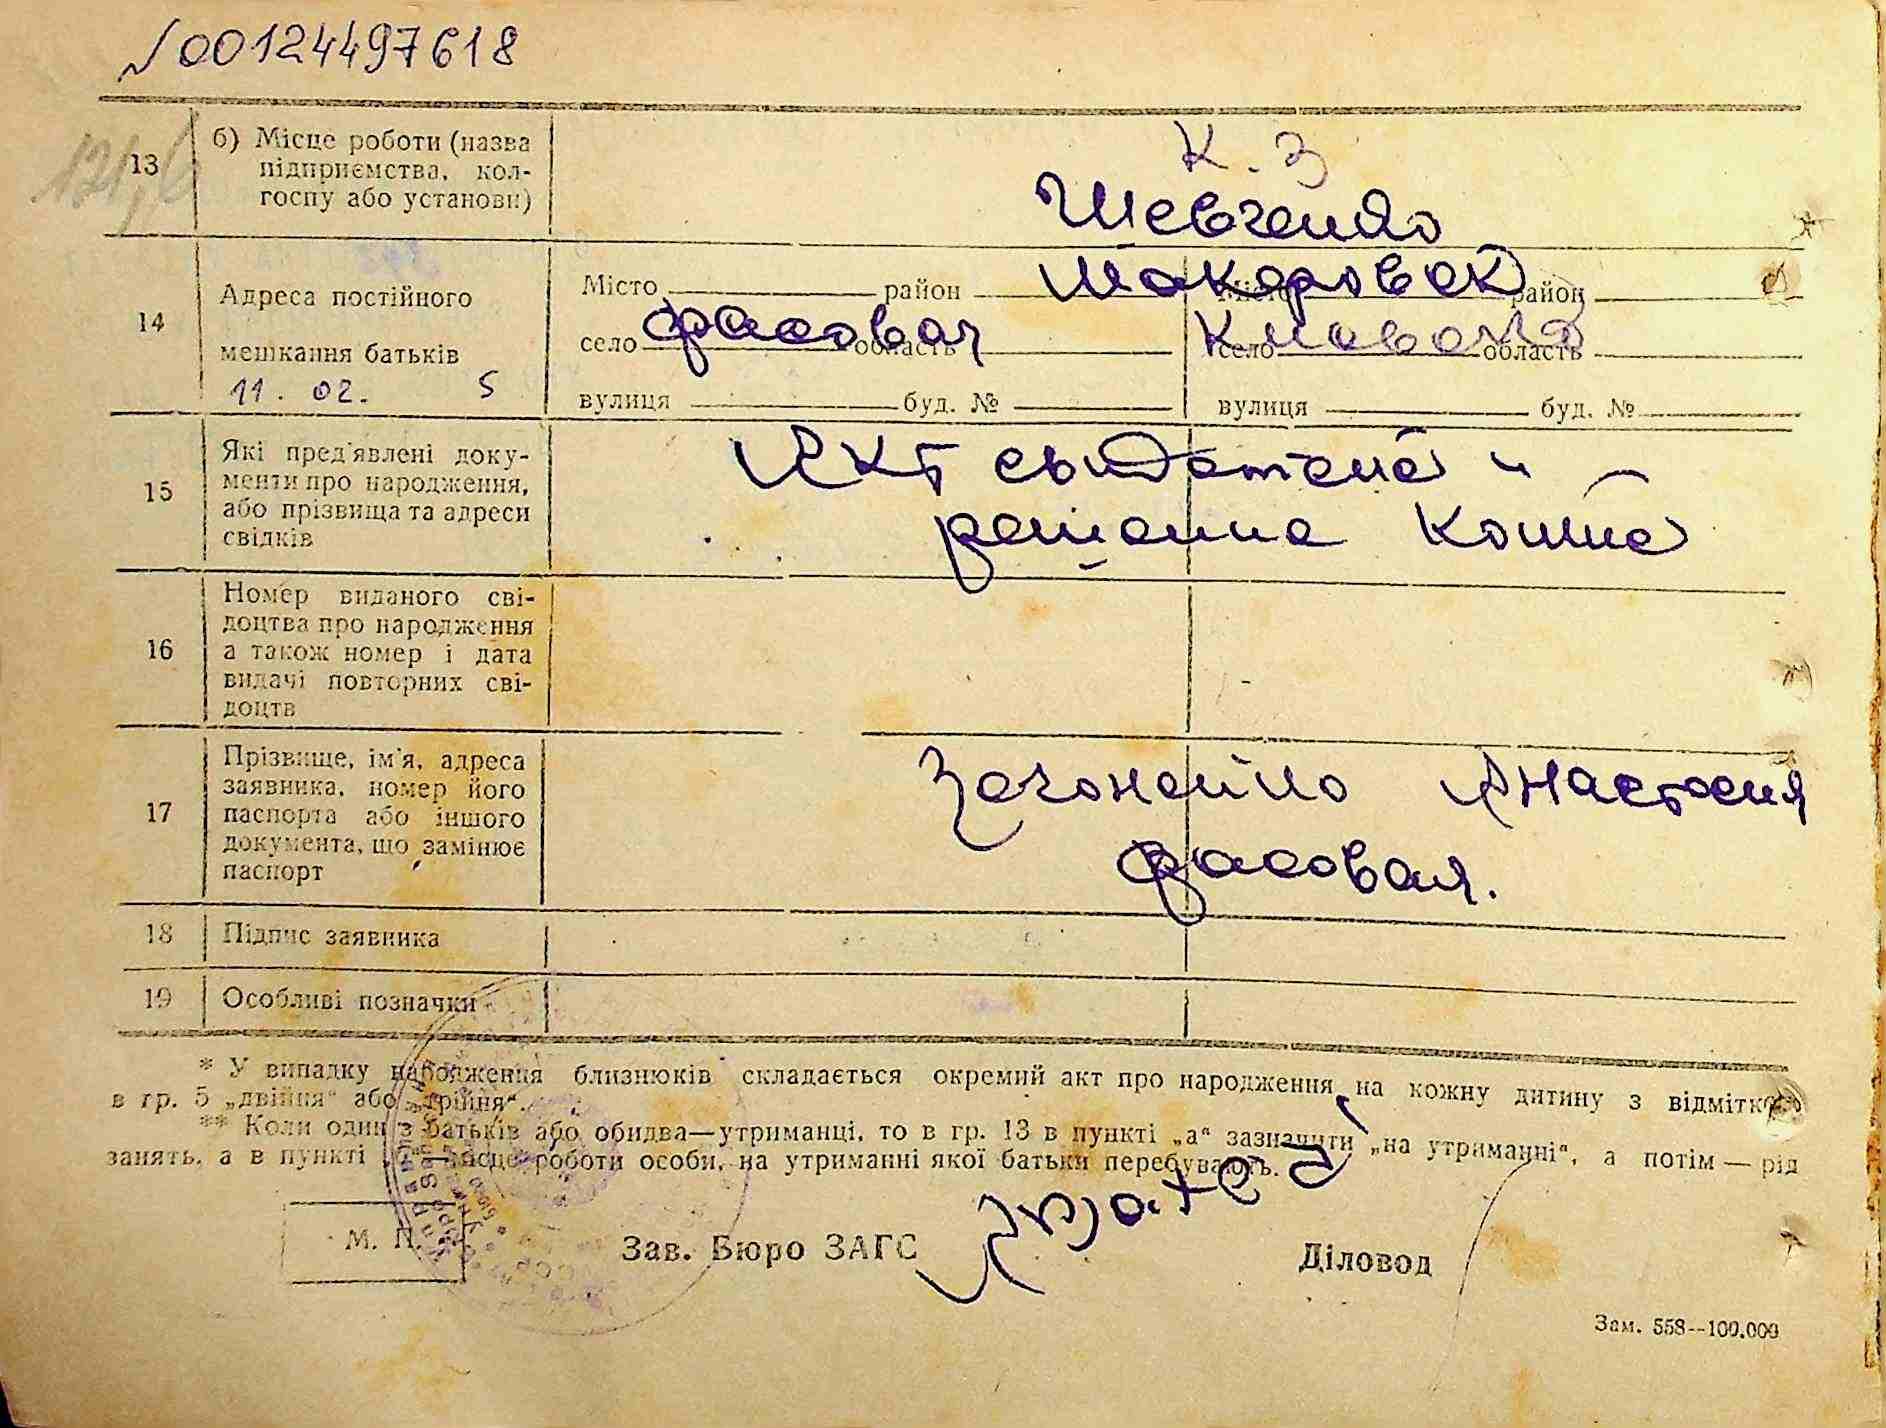 №00124497618
121,6
13
б) Місце роботи (назва
підприємства, кол-
госпу або установи)
К. З
Шевченко
14
Адреса постійного
мешкання батьків
11. 02. 5
Місто район Макаровск Місто район
село Фасовая область Киевская село область
вулиця буд. № вулиця буд. №
15
Які пред'явлені доку-
менти про народження,
або прізвища та адреси
свідків
Акт и
решение
16
Номер виданого сві-
доцтва про народження
а також номер і дата
видачі повторних сві-
доцтв
17
Прізвище, ім'я, адреса
заявника, номер його
паспорта або іншого
документа, що замінює
паспорт
Анастасия
Фасовая.
18 Підпис заявника
19 Особливі позначки
* У випадку народження близнюків складається окремий акт про народження на кожну дитину з відміткою
в гр. 5 „двійня" або „трійня".
** Коли один з батьків або обидва—утриманці, то в гр. 13 в пункті „а" зазначити „на утриманні", а потім — рід
занять, а в пункті місце роботи особи, на утриманні якої батьки перебувають.
М. П. Зав. Бюро ЗАГС Діловод
Зам. 558--100.000